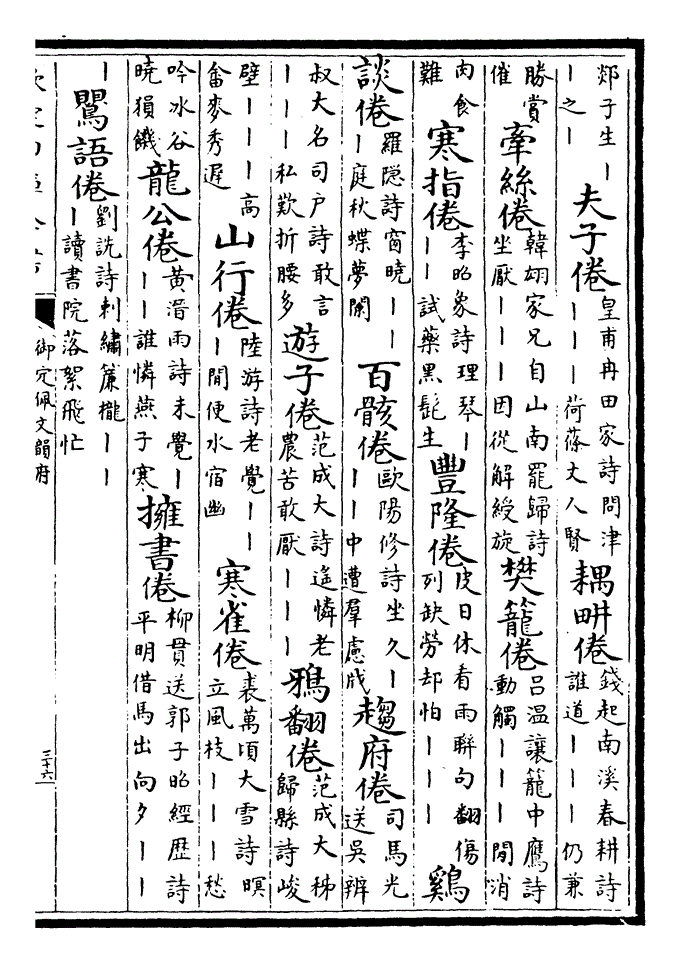 郯子生｜
｜之｜
夫子倦
皇甫冉田家詩問津
｜｜｜荷蓧丈人賢
耦畊倦
錢起南溪春耕詩
誰道｜｜｜仍兼
勝賞
催
牽絲倦
韓翃家兄自山南罷歸詩
坐厭｜｜｜因從解綬旋
樊籠倦
呂温讓籠中鷹詩
動觸｜｜｜閒消
肉食
難
寒指倦
李昭象詩理琴｜
｜｜試藥黑髭生
豐隆倦
皮日休看雨聯句翻傷
列缺勞却怕｜｜｜
鷄
談倦
羅隱詩窗曉｜｜
｜庭秋蝶夢闌
百骸倦
歐陽修詩坐久｜
｜｜中遭羣慮戕
趨府倦
司馬光
送吳辨
叔大名司户詩敢言
｜｜｜私歎折腰多
遊子倦
范成大詩遙憐老
農苦敢厭｜｜｜
鴉翻倦
范成大秭
歸縣詩峻
壁｜｜｜高
畬麥秀遲
山行倦
陸游詩老覺｜｜
｜閒便水宿幽
寒雀倦
裘萬頃大雪詩暝
立風枝｜｜｜愁
吟冰谷
曉猿饑
龍公倦
黄溍雨詩未覺｜
｜｜誰憐燕子寒
擁書倦
柳貫送郭子昭經歷詩
平明借馬出向夕｜｜
｜
鸎語倦
劉詵詩刺繡簾櫳｜｜
｜讀書院落絮飛忙
御定佩文韻府
三十六